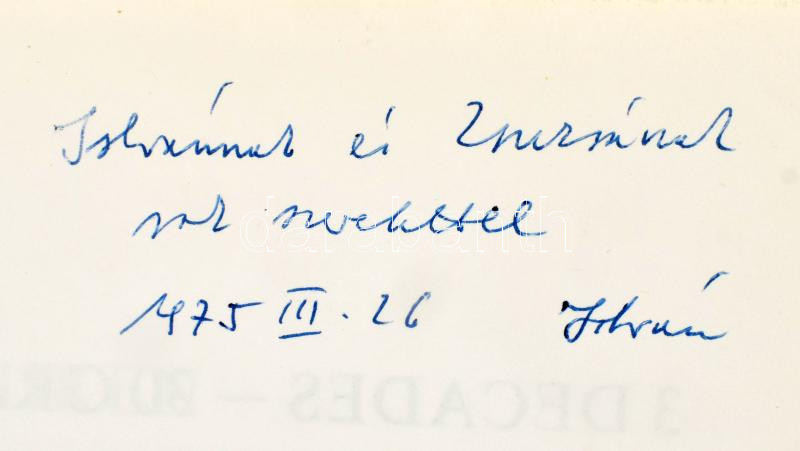 Istvánnak és Zsuzsának
sok szeretettel
1975 III. 26 István
3 DECADES –
darabanth